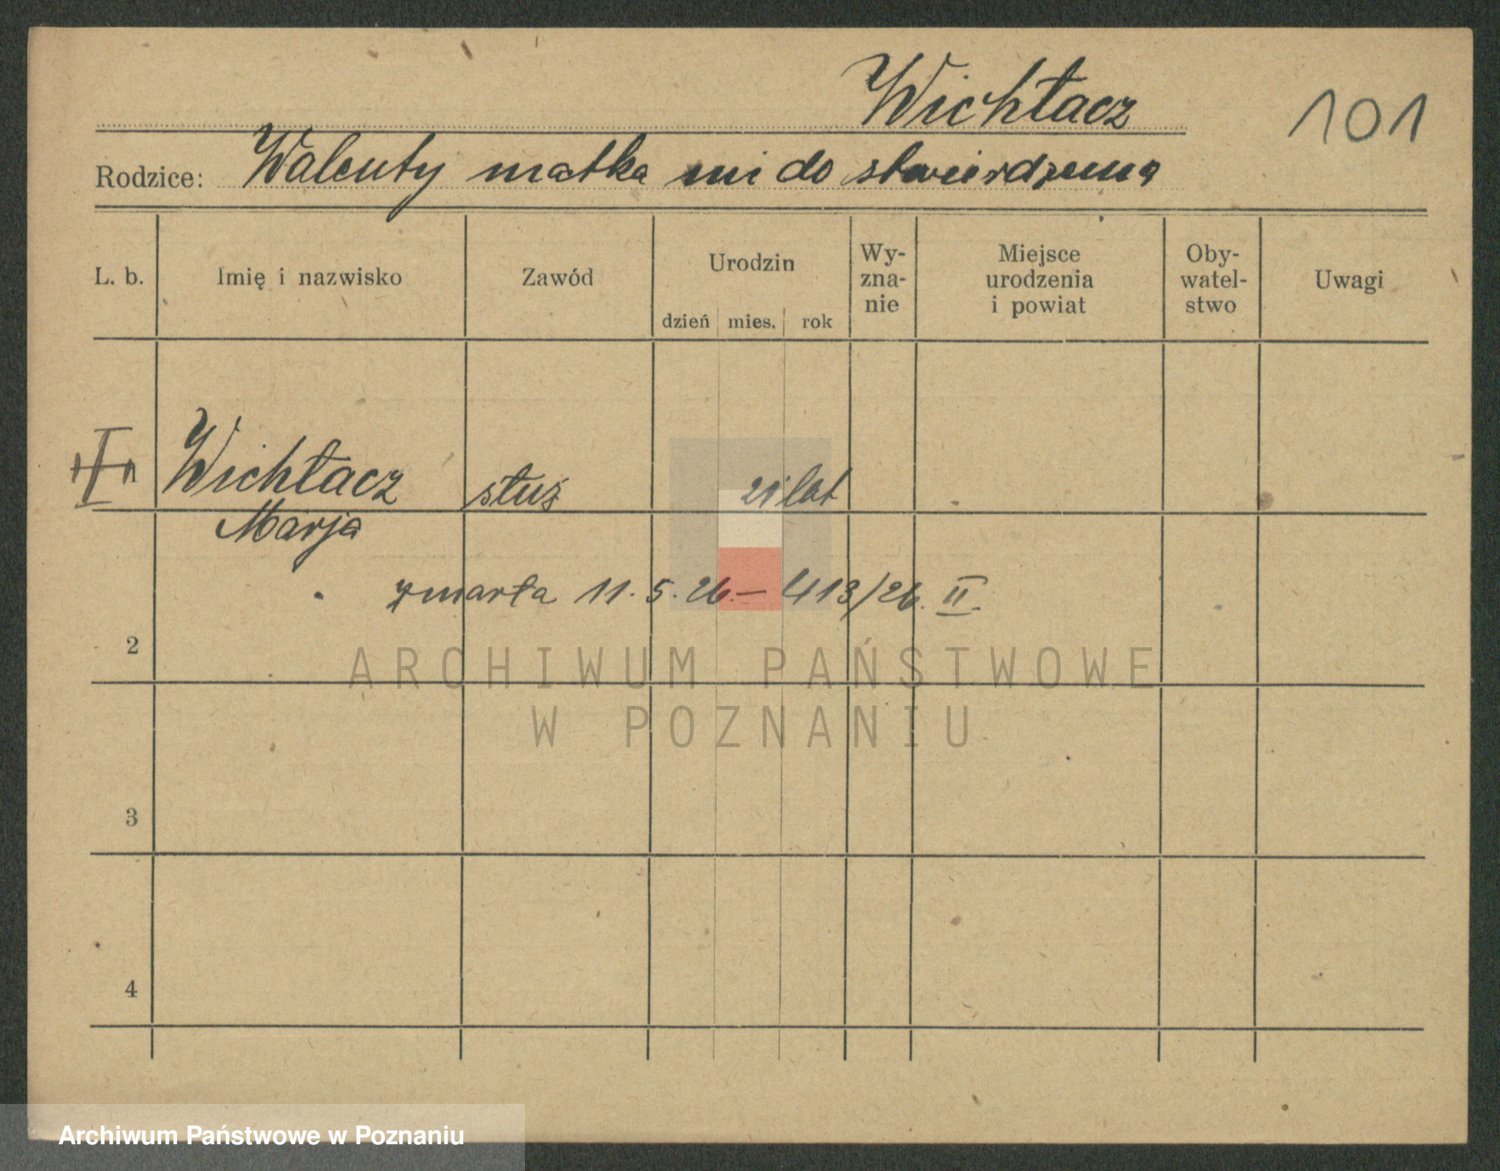 Wichłacz
101
Rodzice: Walenty matka ni do stwierdzenia
L. b. Imię i nazwisko Zawód Urodzin dzień mies. rok Wy-zna-nie Miejsce urodzenia i powiat Oby-watel-stwo Uwagi
Wichłacz służ 21 lat
Marja
zmarła 11. 5. 26. — 413/26. II.
2
ARCHIWUM PAŃSTWOWE
W POZNANIU
3
4
Archiwum Państwowe w Poznaniu